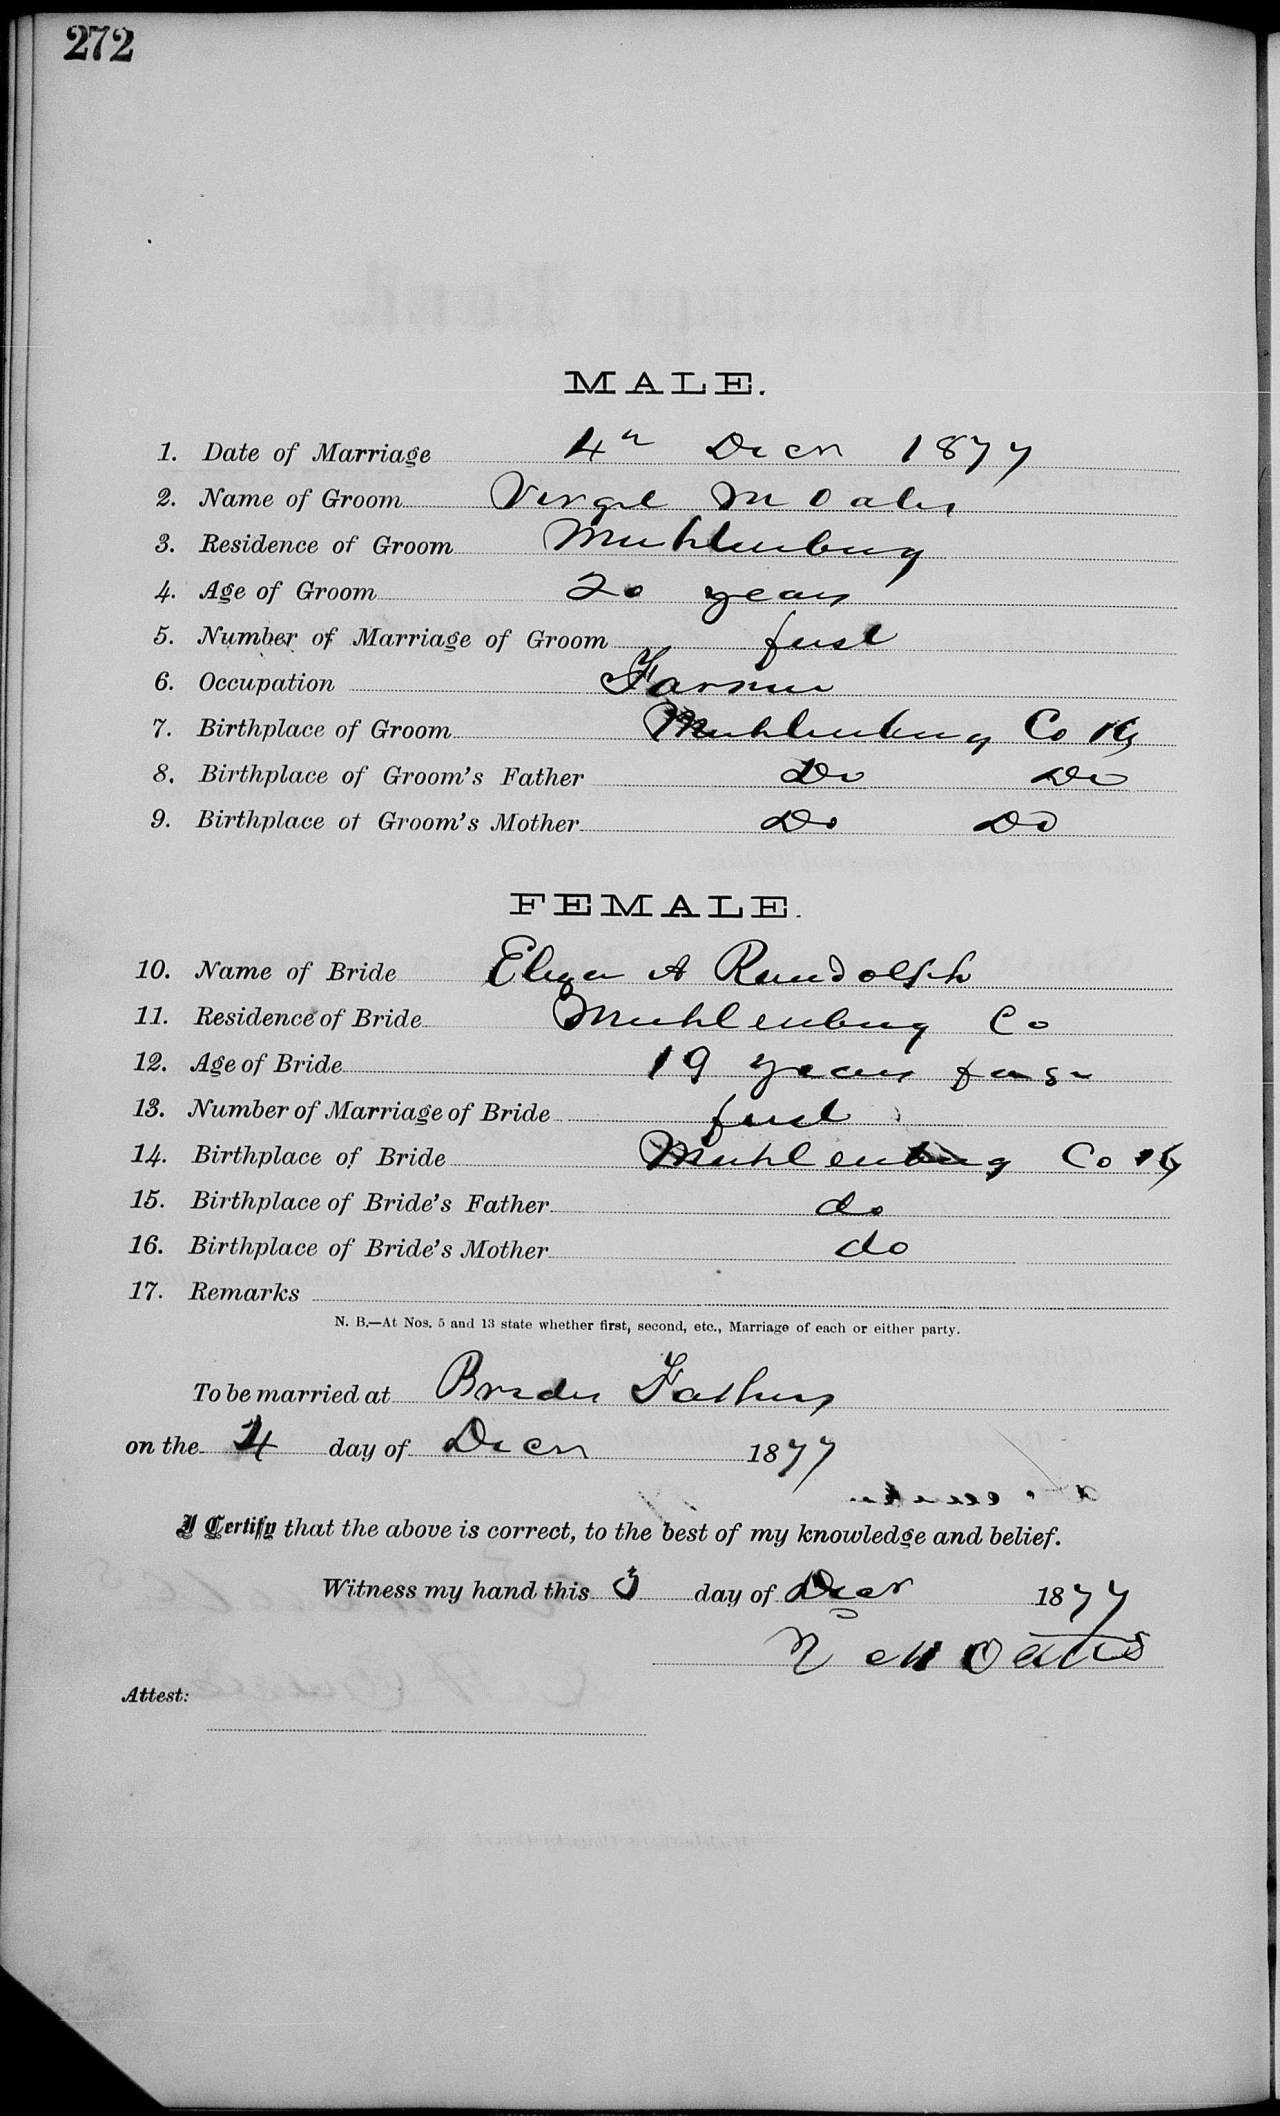 272
MALE.
1. Date of Marriage 4th Decr 1877
2. Name of Groom Virgil M Oates
3. Residence of Groom Muhlenburg
4. Age of Groom 20 years
5. Number of Marriage of Groom first
6. Occupation Farmer
7. Birthplace of Groom Muhlenburg Co Ky
8. Birthplace of Groom's Father Do Do
9. Birthplace of Groom's Mother Do Do
FEMALE.
10. Name of Bride Eliza A Randolph
11. Residence of Bride Muhlenburg Co
12. Age of Bride 19 years of age
13. Number of Marriage of Bride first
14. Birthplace of Bride Muhlenburg Co Ky
15. Birthplace of Bride's Father do
16. Birthplace of Bride's Mother do
17. Remarks
N. B.—At Nos. 5 and 13 state whether first, second, etc., Marriage of each or either party.
To be married at Brides Fathers
on the 4 day of Decr 1877
I Certify that the above is correct, to the best of my knowledge and belief.
Witness my hand this 3 day of Decr 1877
V M Oates
Attest: